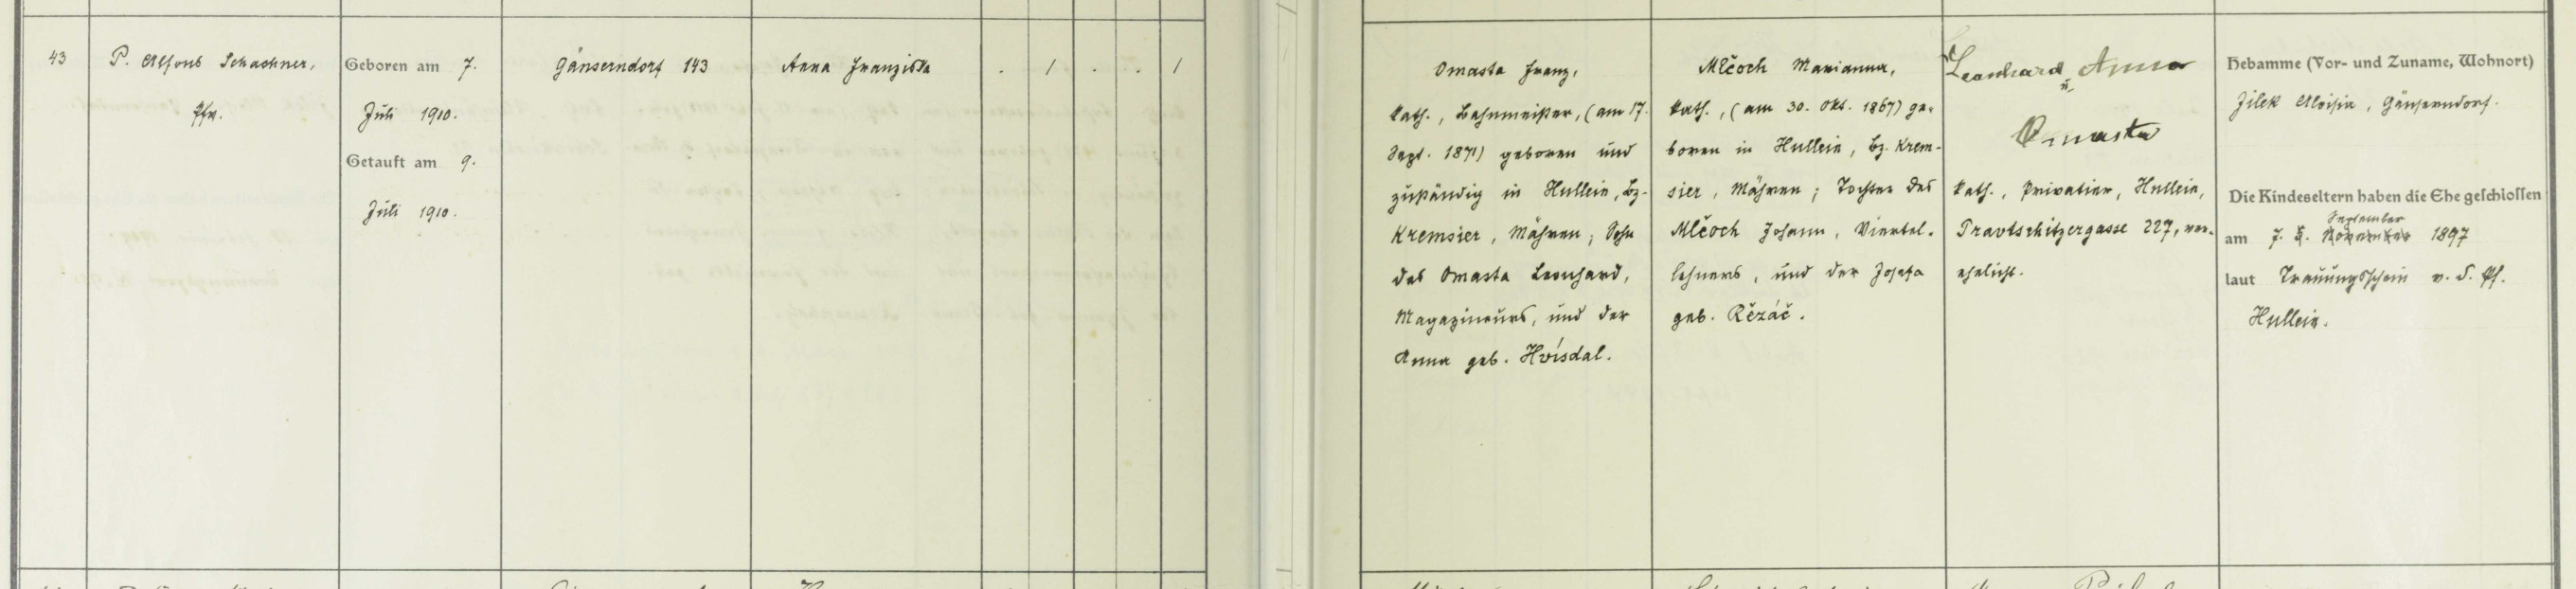 43
P. Alfons Schachner,
Pfr.
Geboren am 7.
Juli 1910.
Getauft am 9.
Juli 1910.
Gänserndorf 143
Anna Franziska
. 1 . . 1
Omasta Franz,
kath., Bahnmeister, (am 17.
Sept. 1871) geboren und
zuständig in Hullein, Bz.
Kremsier, Mähren; Sohn
des Omasta Leonhard,
Magazineurs, und der
Anna geb. Hvísdal.
Mlčoch Marianna,
kath., (am 30. Okt. 1867) ge-
boren in Hullein, Bz. Krem-
sier, Mähren; Tochter des
Mlčoch Johann, Viertel-
lehners, und der Josefa
geb. Rězáč.
Leonhard u. Anna
Omasta
kath., Privatier, Hullein,
Pravtschitzergasse 227, ver-
ehelicht.
Hebamme (Vor- und Zuname, Wohnort)
Jilek Aloisia, Gänserndorf.
Die Kindeseltern haben die Ehe geschlossen
September
am 7. November 1897
laut Trauungsschein v. d. Pf.
Hullein.